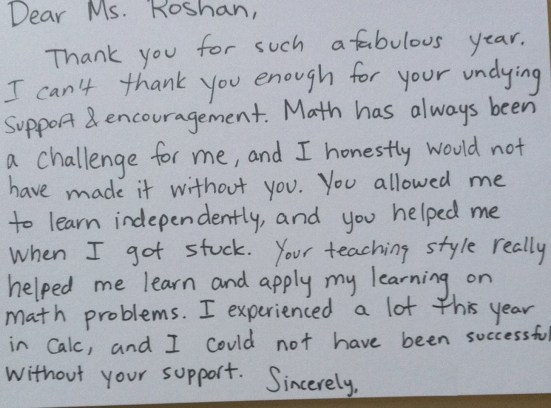 Dear Ms. Roshan,
Thank you for such a fabulous year.
I can't thank you enough for your undying
support & encouragement. Math has always been
a challenge for me, and I honestly would not
have made it without you. You allowed me
to learn independently, and you helped me
when I got stuck. Your teaching style really
helped me learn and apply my learning on
math problems. I experienced a lot this year
in Calc, and I could not have been successful
without your support. Sincerely,